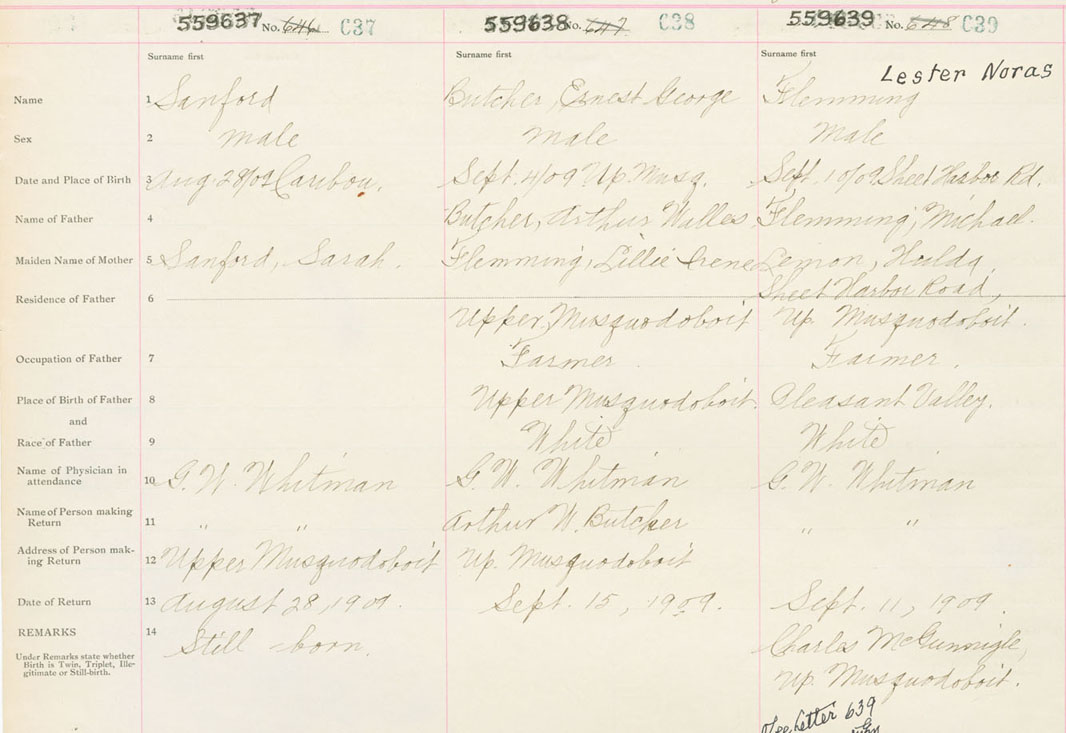 559637 No. 646 C37 559638 No. 647 C38 559639 No. 648 C39
Surname first Surname first Surname first
Lester Noras
Name 1 Sanford Butcher, Ernest George Flemming
Sex 2 male male Male
Date and Place of Birth 3 Aug. 28/09 Caribou. Sept. 4/09 Up Musq. Sept. 10/09 Sheet Harbor Rd.
Name of Father 4 Butcher, Arthur Willes Flemming, Michael.
Maiden Name of Mother 5 Sanford, Sarah. Flemming, Lillie Irene Lemon, Hulda,
Residence of Father 6 Sheet Harbor Road,
Upper Musquodoboit Up. Musquodoboit.
Occupation of Father 7 Farmer Farmer.
Place of Birth of Father 8 Upper Musquodoboit. Pleasant Valley.
and
Race of Father 9 White White
Name of Physician in
attendance 10 G. W. Whitman G. W. Whitman G. W. Whitman
Name of Person making
Return 11 " " Arthur W. Butcher " "
Address of Person mak-
ing Return 12 Upper Musquodoboit Up. Musquodoboit
Date of Return 13 August 28, 1909. Sept. 15, 1909. Sept. 11, 1909.
REMARKS 14 Still-born. Charles McGunnigle,
Under Remarks state whether
Birth is Twin, Triplet, Ille-
gitimate or Still-birth.
Up. Musquodoboit.
See Letter 639